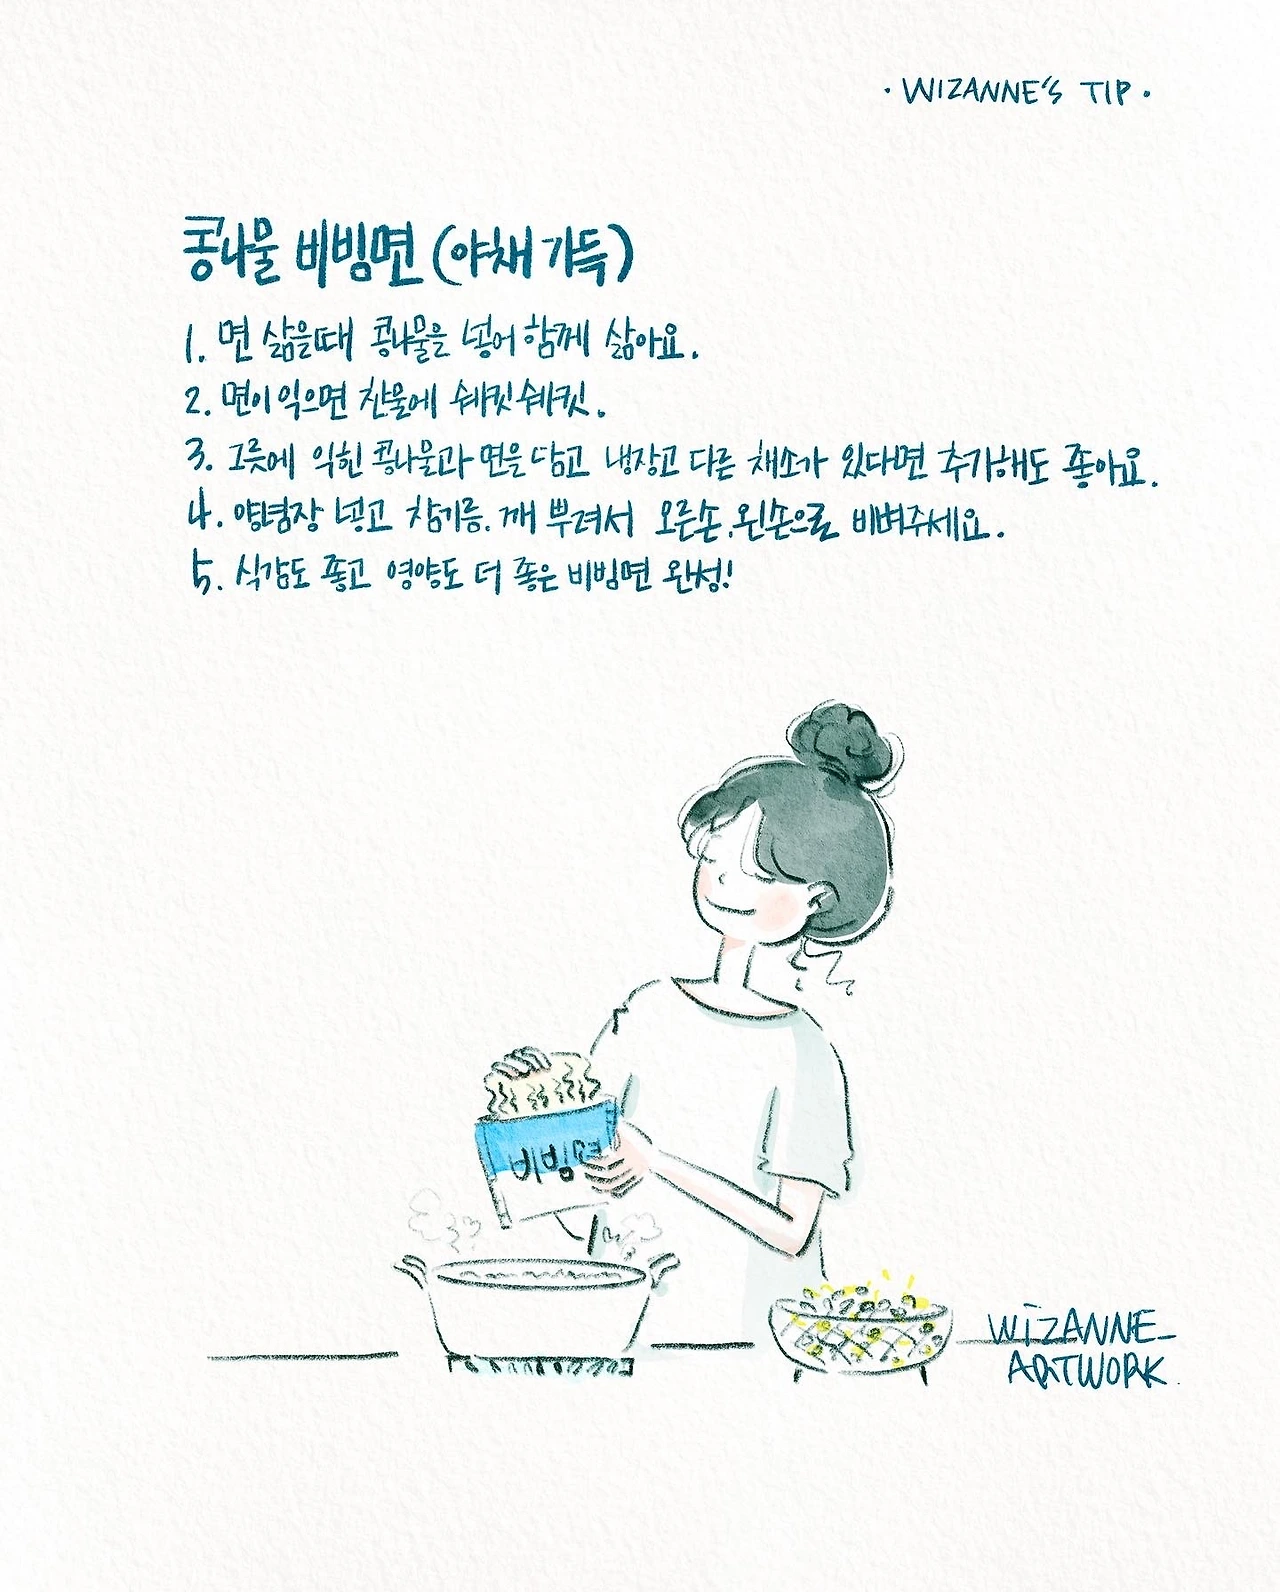 · WIZANNE'S TIP ·
콩나물 비빔면 (야채 가득)
1. 면 삶을때 콩나물을 넣어 함께 삶아요.
2. 면이 익으면 찬물에 쉐킷쉐킷.
3. 그릇에 익힌 콩나물과 면을 담고 냉장고 다른 채소가 있다면 추가해도 좋아요.
4. 양념장 넣고 참기름. 깨 뿌려서 오른손, 왼손으로 비벼주세요.
5. 식감도 좋고 영양도 더 좋은 비빔면 완성!
비빔면
WIZANNE_
ARTWORK.